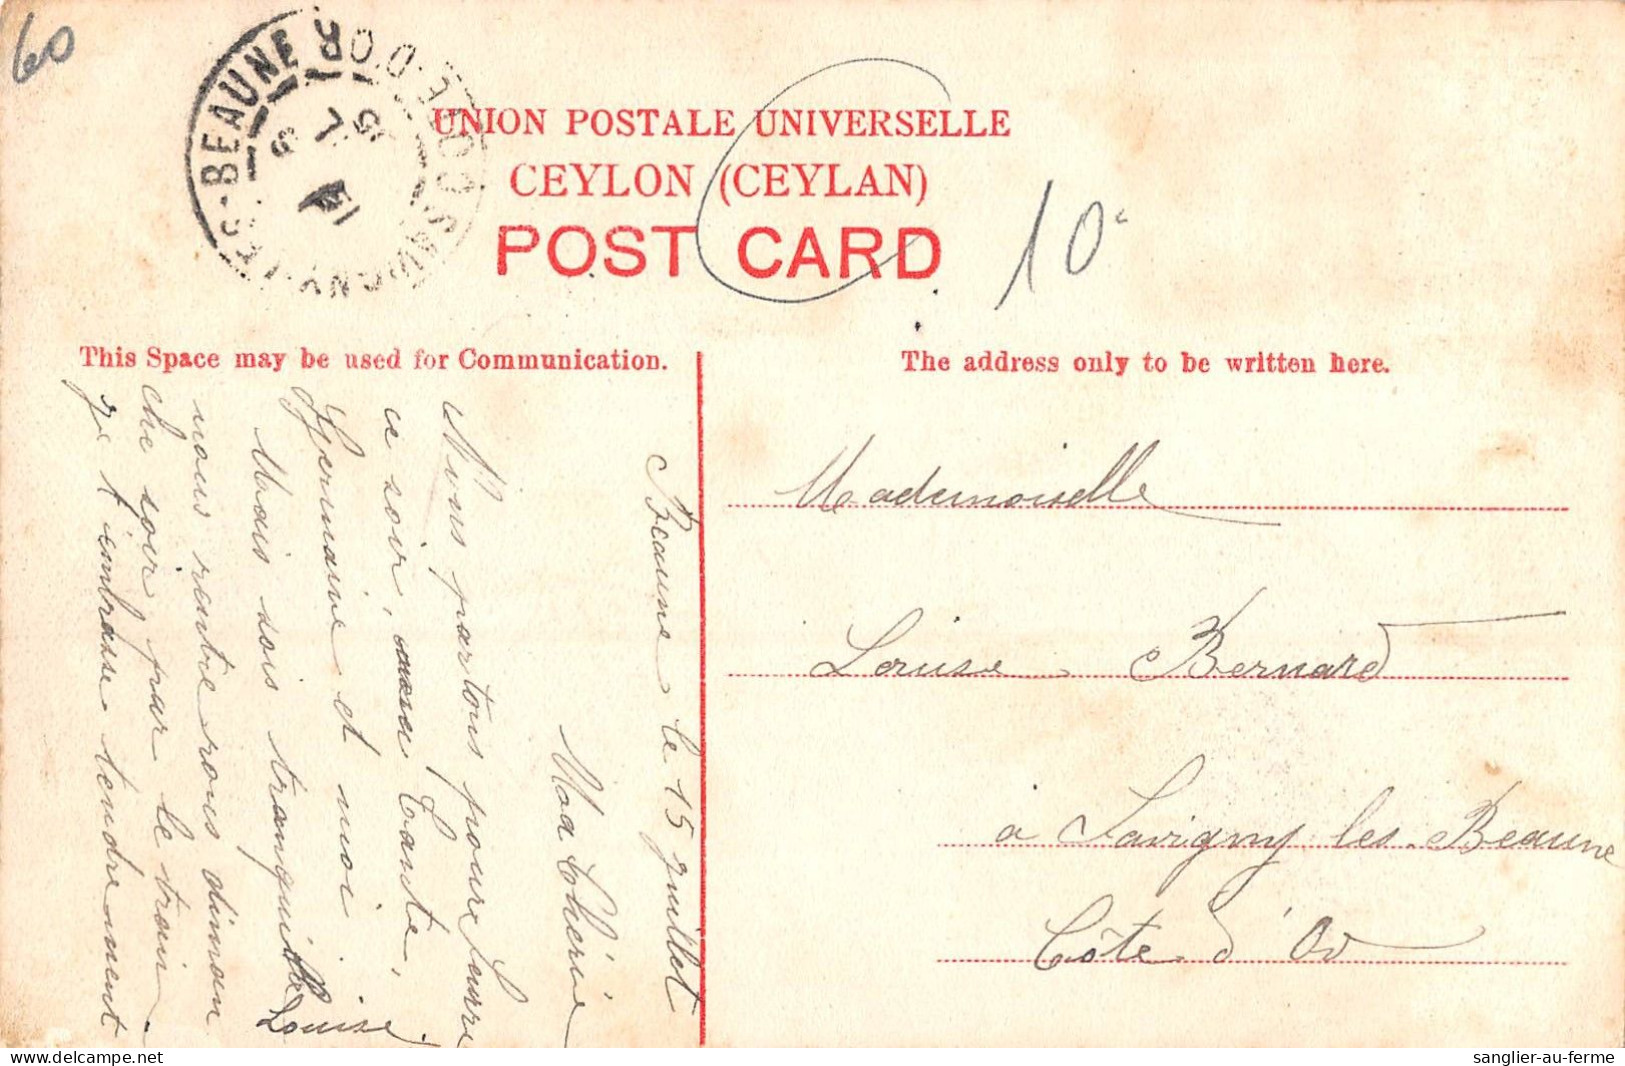 60
SAVIGNY-LES-BEAUNE
CÔTE-D'OR
UNION POSTALE UNIVERSELLE
CEYLON (CEYLAN)
POST CARD
10c
This Space may be used for Communication.
The address only to be written here.
Beaune le 15 juillet
Ma Chérie
Nous partons pour
ce soir, Tante,
Germaine et moi
Mais sois tranquille Louise
nous rentrerons diman
che soir par le train.
Je t'embrasse tendrement
Mademoiselle
Louise Bernard
à Savigny les Beaune
Côte d'Or
sanglier-au-ferme